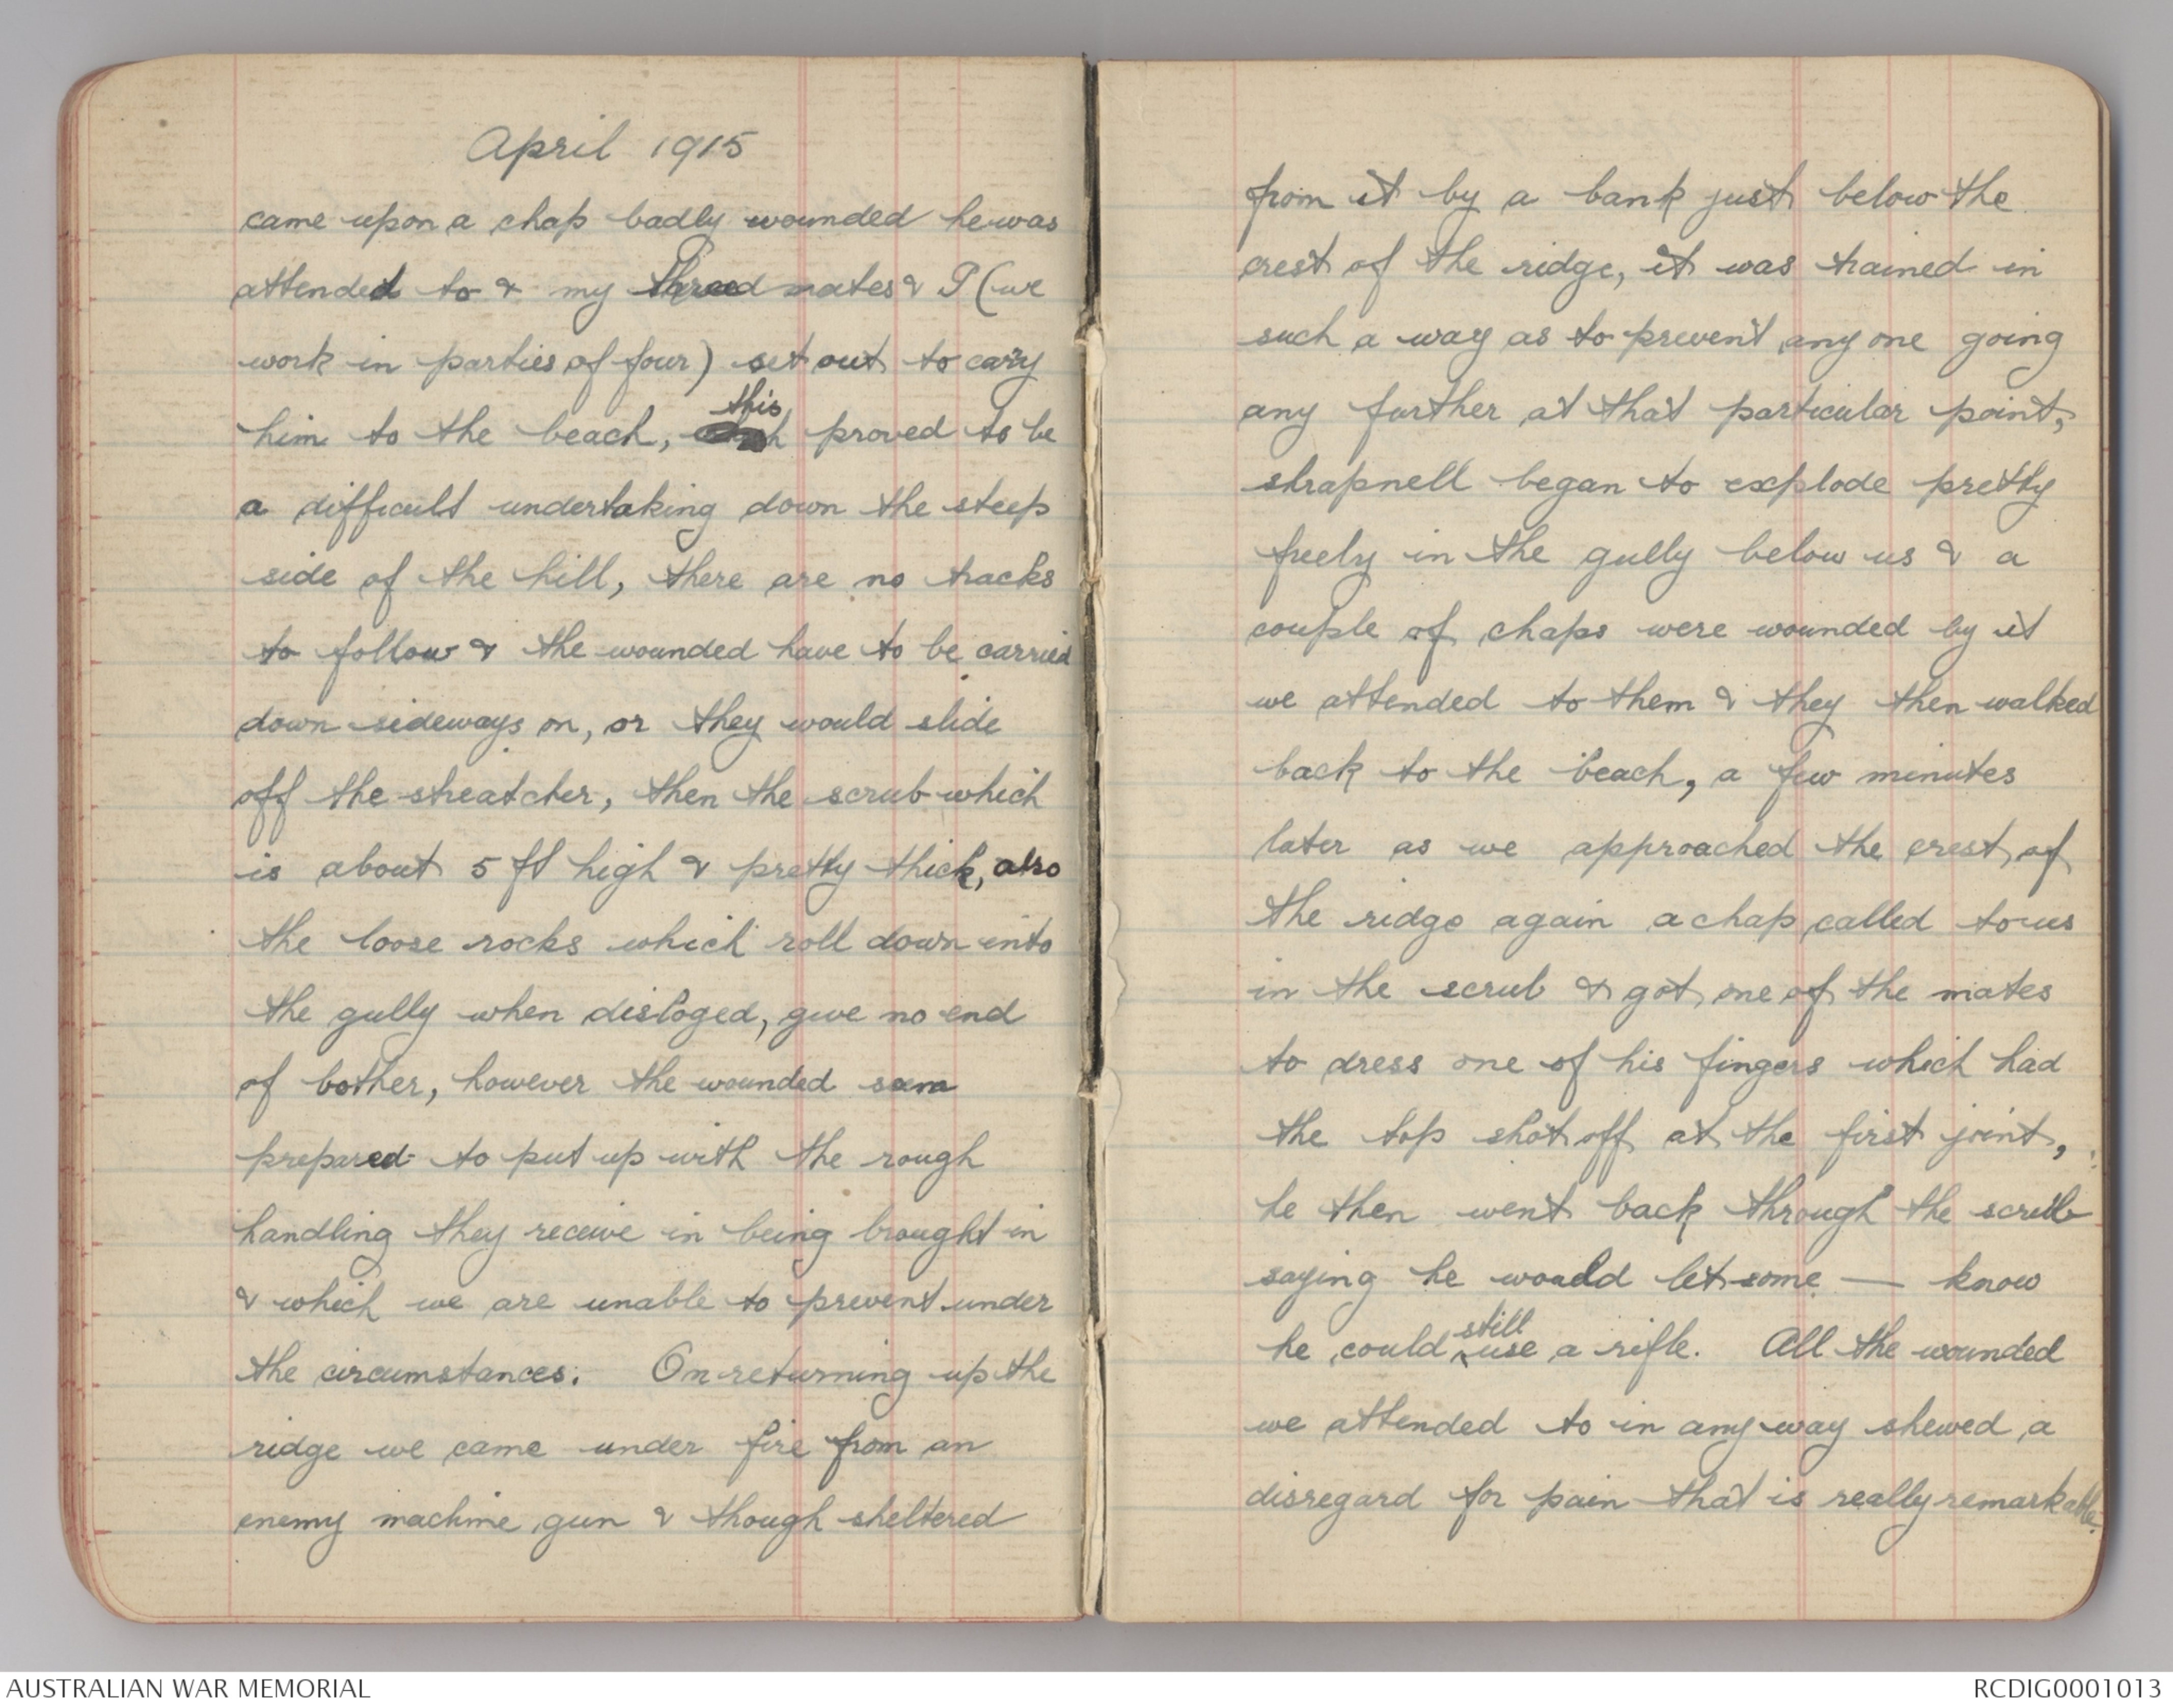 April 1915
came upon a chap badly wounded he was
attended to & my three mates & I (we
work in parties of four) set out to carry
him to the beach, this proved to be
a difficult undertaking down the steep
side of the hill, there are no tracks
to follow & the wounded have to be carried
down sideways on, or they would slide
off the streatcher, then the scrub which
is about 5 ft high & pretty thick, also
the loose rocks which roll down into
the gully when disloged, give no end
of bother, however the wounded seem
prepared to put up with the rough
handling they receive in being brought in
& which we are unable to prevent under
the circumstances. On returning up the
ridge we came under fire from an
enemy machine gun & though sheltered
from it by a bank just below the
crest of the ridge, it was trained in
such a way as to prevent any one going
any further at that particular point,
shrapnell began to explode pretty
freely in the gully below us & a
couple of chaps were wounded by it
we attended to them & they then walked
back to the beach, a few minutes
later as we approached the crest of
the ridge again a chap called to us
in the scrub & got one of the mates
to dress one of his fingers which had
the top shot off at the first joint,
he then went back through the scrub
saying he would let some — know
he could still use a rifle. All the wounded
we attended to in any way shewed a
disregard for pain that is really remarkable.
AUSTRALIAN WAR MEMORIAL
RCDIG0001013